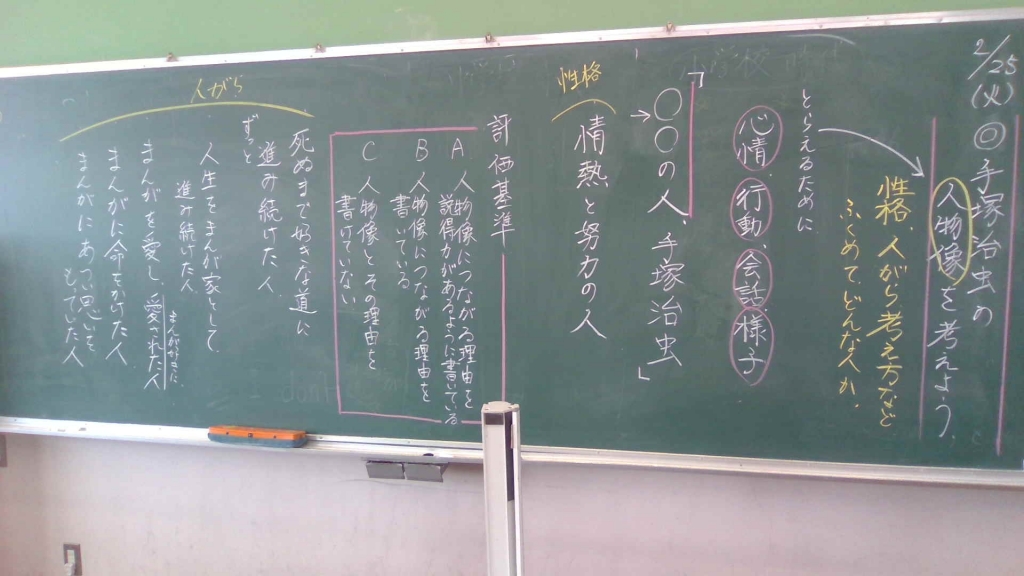 2/25(火)
◎手塚治虫の
人物像を考えよう。
性格、人がら考え方など
ふくめてどんな人か。
とらえるために
心情、行動、会話、様子
「○○の人、手塚治虫」
性格
情熱と努力の人
評価基準
A 人物像につながる理由を
説得力があるように書いている
B 人物像につながる理由を
書いている
C 人物像とその理由を
書けていない
人がら
死ぬまで好きな道に
進み続けた人
ずっと
人生をまんが家として
進み続けた人
まんが好きに
まんがを愛し、愛された人
まんがに命をかけた人
まんがにあつい思いを
もっていた人